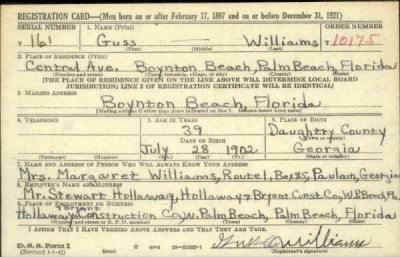 REGISTRATION CARD—(Men born on or after February 17, 1897 and on or before December 31, 1921)
SERIAL NUMBER 1. NAME (Print) ORDER NUMBER
T. 161 Guss Williams T. 10175
(First) (Middle) (Last)
2. PLACE OF RESIDENCE (Print)
Central Ave. Boynton Beach, Palm Beach, Florida
(Number and street) (Town, township, village, or city) (County) (State)
[THE PLACE OF RESIDENCE GIVEN ON THE LINE ABOVE WILL DETERMINE LOCAL BOARD
JURISDICTION; LINE 2 OF REGISTRATION CERTIFICATE WILL BE IDENTICAL]
3. MAILING ADDRESS
Boynton Beach, Florida
[Mailing address if other than place indicated on line 2. If same insert word same]
4. TELEPHONE 5. AGE IN YEARS 6. PLACE OF BIRTH
39 Daughty County
DATE OF BIRTH (Town or county)
July 28 1902 Georgia
(Exchange) (Number) (Mo.) (Day) (Yr.) (State or country)
7. NAME AND ADDRESS OF PERSON WHO WILL ALWAYS KNOW YOUR ADDRESS
Mrs. Margaret Williams, Route 1, Box 25, Paulan, Georgia
8. EMPLOYER'S NAME AND ADDRESS
Mr. Stewart Hollaway, Hollaway & Bryant Const. Co, W.P. Beach, Fla.
9. PLACE OF EMPLOYMENT OR BUSINESS
Bryant
Hollaway Construction Co, W. Palm Beach, Palm Beach, Florida
(Number and street or R. F. D. number) (Town) (County) (State)
I AFFIRM THAT I HAVE VERIFIED ABOVE ANSWERS AND THAT THEY ARE TRUE.
D. S. S. Form 1
(Revised 1-1-42) GPO Williams
(Registrant's signature)